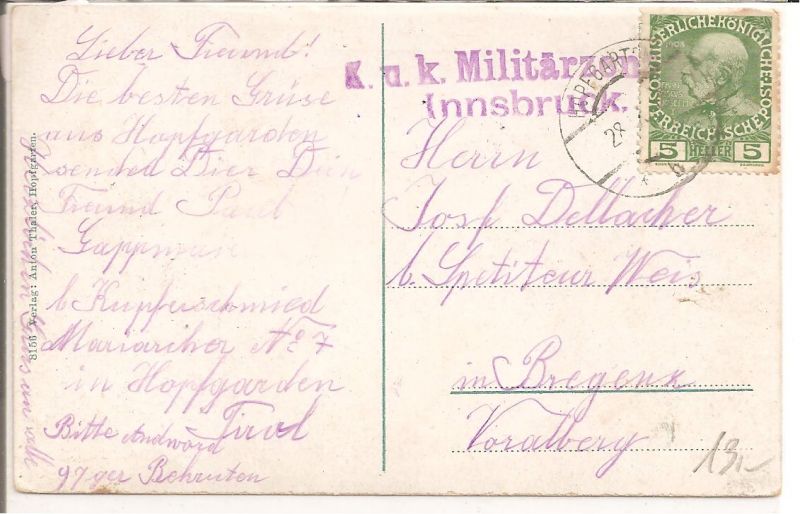 Lieber Freund!
Die besten Grüse
aus Hopfgarden
sended Dier Dein
Freund Paul
b. Kupferschmied
Mariacher No 7
in Hopfgarden
Tirol
Bitte Andword
97ger Rekruten
8156 Verlag: Anton Thaler, Hopfgarten.
K. u. k. Militärzen
Innsbruck.
HOPFGART
28.
1908
KAISERLICHEKÖNIGLICHE
ÖSTERREICHISCHEPOST
5 HELLER 5
Herrn
Josf Dellacher
b. Spetiteur Weis
in Bregenz
Voralberg
13,-